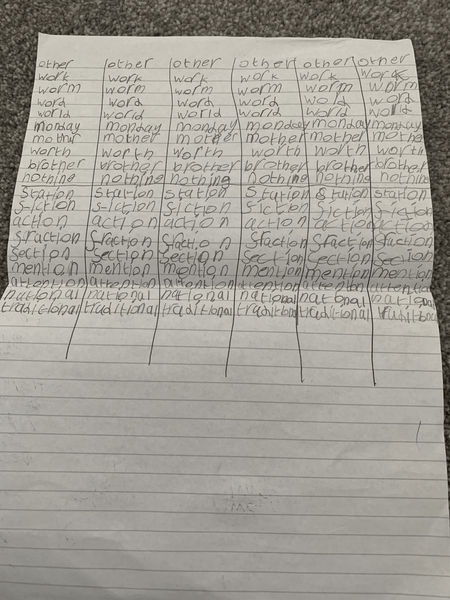 other other other other other other
work work work work work work
worm worm worm worm worm worm
word word word word wold word
world world world world world world
monday monday monday monday monday monday
mother mother mother mother mother
worth worth worth worth worth worth
brother brother brother brother brother brother
nothing nothing nothing nothing nothing nothing
station station station station station station
fiction fiction fiction fiction fiction fiction
action action action action action action
fraction fraction fraction fraction fraction
section section section section section section
mention mention mention mention mention mention
attention attention attention attention attention attention
national national national national national national
traditional traditional traditional traditional traditional